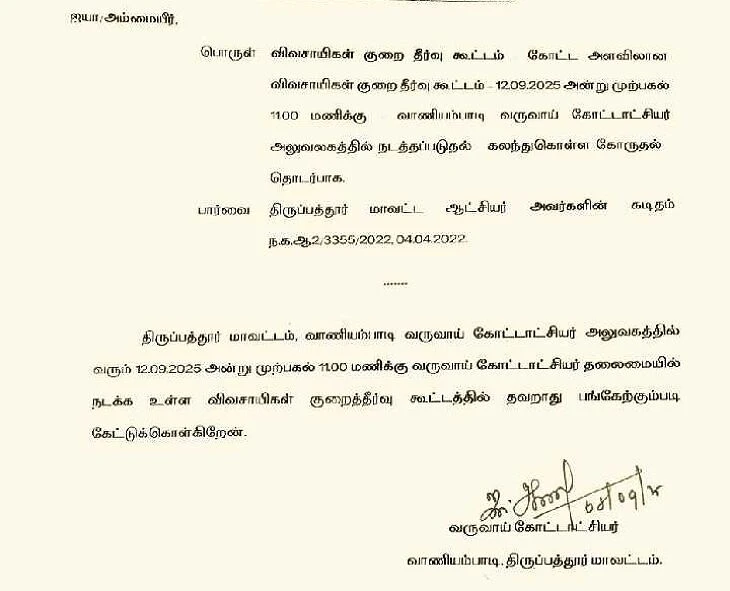 ஐயா/அம்மையீர்,
பொருள் விவசாயிகள் குறை தீர்வு கூட்டம் - கோட்ட அளவிலான
விவசாயிகள் குறை தீர்வு கூட்டம் - 12.09.2025 அன்று முற்பகல்
11.00 மணிக்கு - வாணியம்பாடி வருவாய் கோட்டாட்சியர்
அலுவலகத்தில் நடத்தப்படுதல் கலந்துகொள்ள கோருதல்
தொடர்பாக.
பார்வை திருப்பத்தூர் மாவட்ட ஆட்சியர் அவர்களின் கடிதம்
ந.க.ஆ2/3355/2022, 04.04.2022.
.......
திருப்பத்தூர் மாவட்டம், வாணியம்பாடி வருவாய் கோட்டாட்சியர் அலுவகத்தில்
வரும் 12.09.2025 அன்று முற்பகல் 11.00 மணிக்கு வருவாய் கோட்டாட்சியர் தலைமையில்
நடக்க உள்ள விவசாயிகள் குறைத்தீர்வு கூட்டத்தில் தவறாது பங்கேற்கும்படி
கேட்டுக்கொள்கிறேன்.
வருவாய் கோட்டாட்சியர்
வாணியம்பாடி, திருப்பத்தூர் மாவட்டம்.